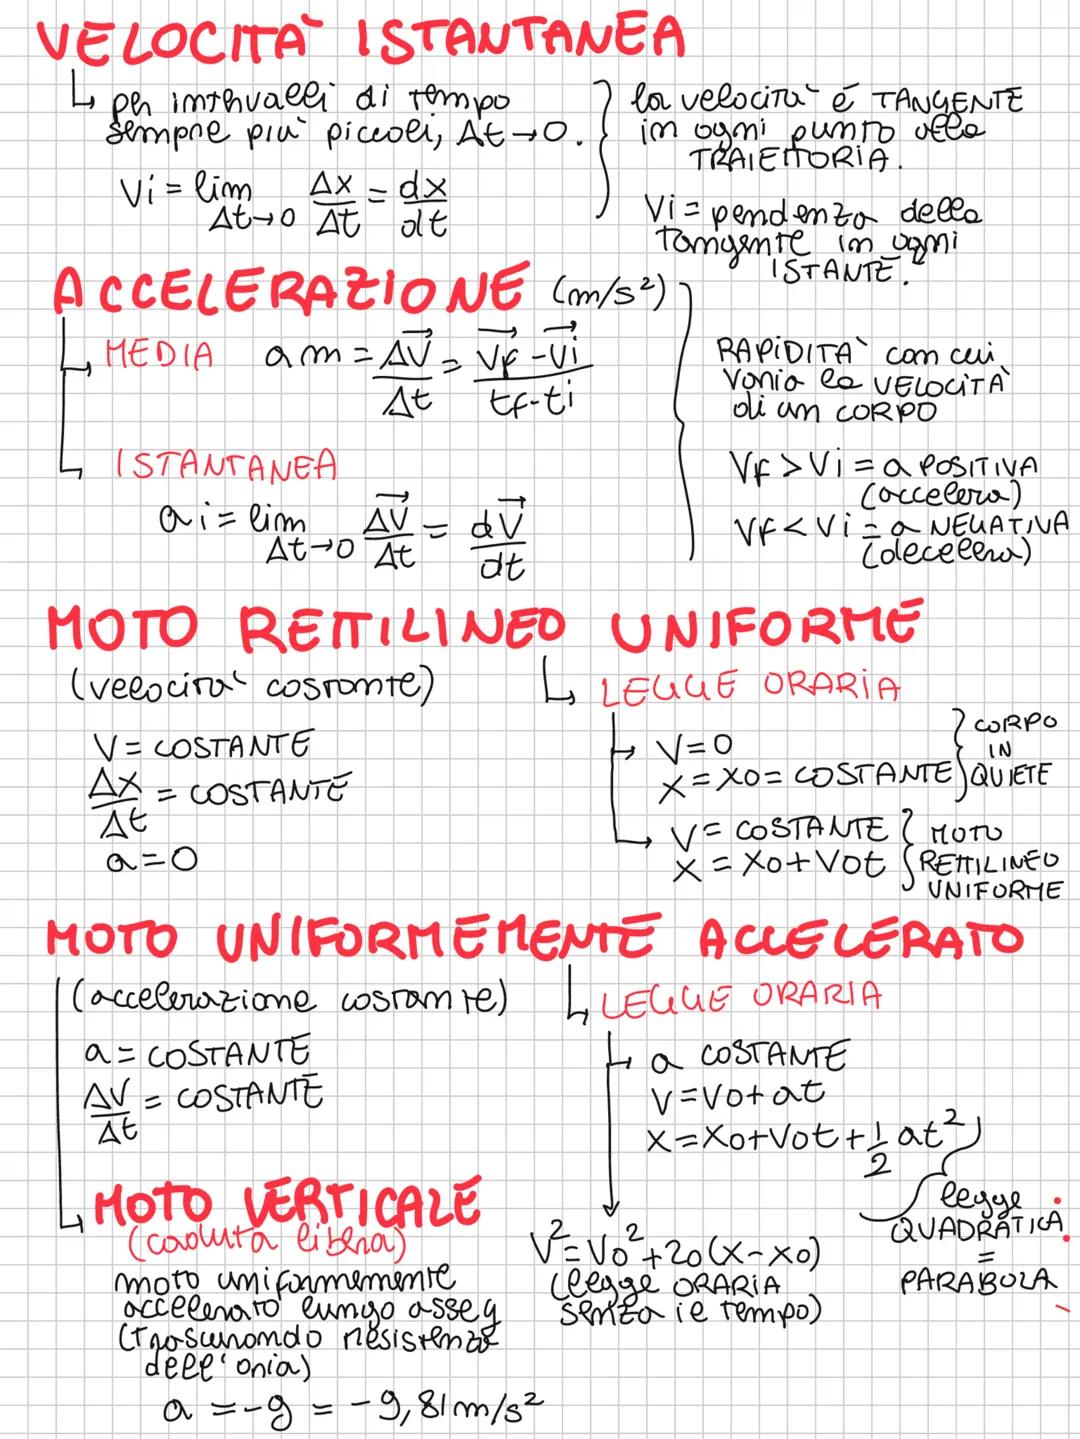 VELOCITÀ ISTANTANEA
↳ per intervalli di tempo
sempre più piccoli, Δt→0.
Vi = lim Δt→0 Δx/Δt = dx/dt
la velocità è TANGENTE
in ogni punto della
TRAIETTORIA.
Vi = pendenza della
tangente in ogni
ISTANTE.
ACCELERAZIONE (m/s²)
↳ MEDIA am = ΔV⃗/Δt = (V⃗f - V⃗i)/(tf-ti)
↳ ISTANTANEA
ai = lim Δt→0 ΔV⃗/Δt = dV⃗/dt
RAPIDITÀ con cui
varia la VELOCITÀ
di un CORPO
Vf > Vi = a POSITIVA
(accelera)
Vf < Vi = a NEGATIVA
(decelera)
MOTO RETTILINEO UNIFORME
(velocità costante)
V = COSTANTE
Δx/Δt = COSTANTE
a = 0
↳ LEGGE ORARIA
↳ V=0
x = x0 = COSTANTE
CORPO
IN
QUIETE
→ V = COSTANTE
x = x0 + V0t
MOTO
RETTILINEO
UNIFORME
MOTO UNIFORMEMENTE ACCELERATO
(accelerazione costante)
a = COSTANTE
ΔV/Δt = COSTANTE
↳ LEGGE ORARIA
↳ a COSTANTE
V = V0 + at
x = x0 + V0t + 1/2 at²
legge
QUADRATICA
=
PARABOLA
V² = V0² + 2a(x - x0)
(legge ORARIA
senza il tempo)
↳ MOTO VERTICALE
(caduta libera)
moto uniformemente
accelerato lungo asse y
(trascurando resistenza
dell'aria)
a = -g = -9,81 m/s²